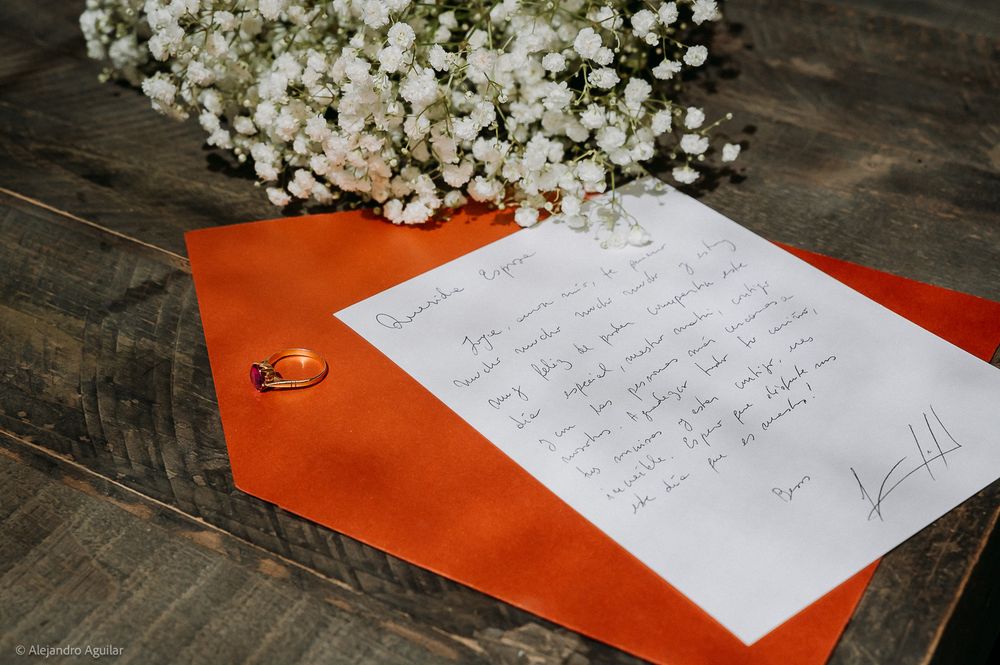 Querida Esposa
Jope, amor mío, te quiero
mucho mucho mucho mucho y estoy
muy feliz de poder compartir este
día especial, nuestro día, contigo
y con las personas más cercanas a
nosotros. Agradezco todo tu cariño,
tus sonrisas y estar contigo, eres
increíble. Espero que disfrutes
este día que es nuestro!
Besos
© Alejandro Aguilar